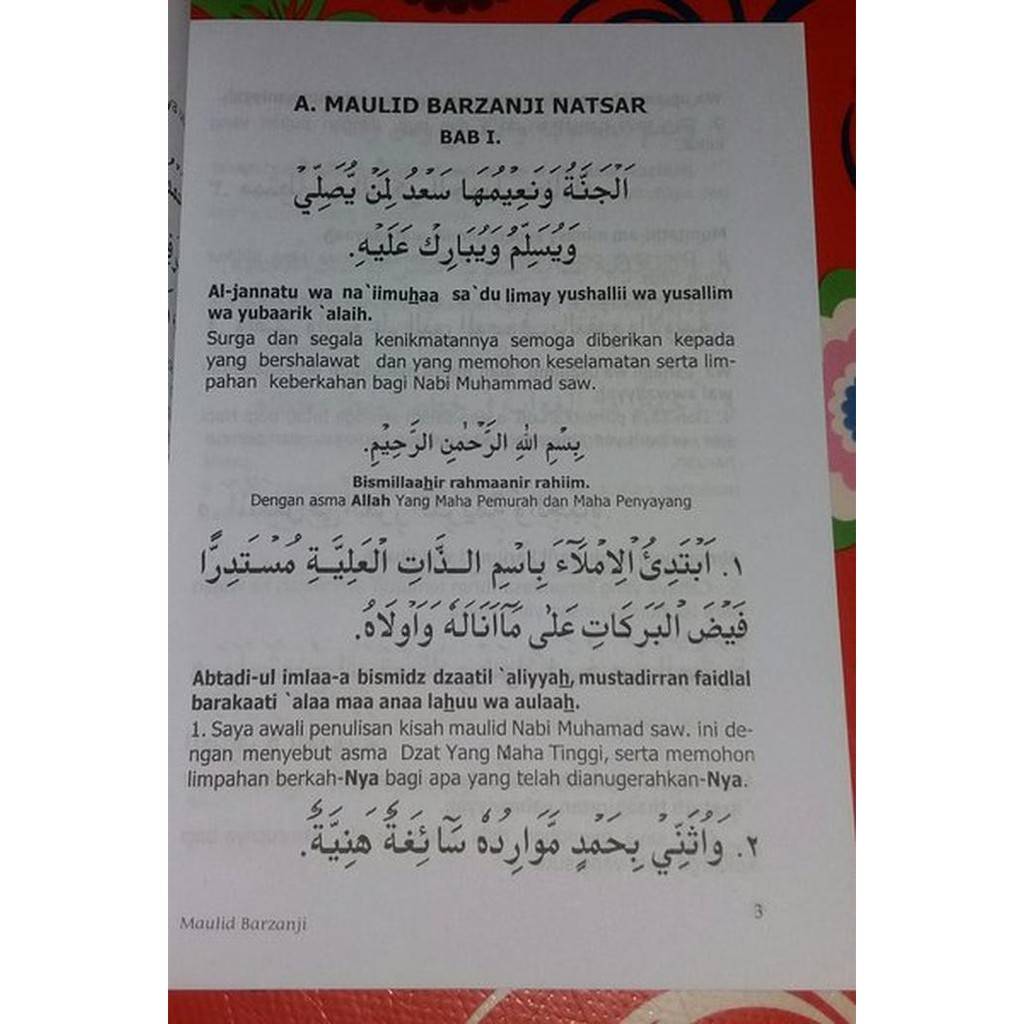 A. MAULID BARZANJI NATSAR
BAB I.
اَلْجَنَّةُ وَنَعِيْمُهَا سَعْدٌ لِمَنْ يُّصَلِّيْ
وَيُسَلِّمُ وَيُبَارِكُ عَلَيْهِ.
Al-jannatu wa na`iimuhaa sa`du limay yushallii wa yusallim
wa yubaarik `alaih.
Surga dan segala kenikmatannya semoga diberikan kepada
yang bershalawat dan yang memohon keselamatan serta lim-
pahan keberkahan bagi Nabi Muhammad saw.
بِسْمِ اللهِ الرَّحْمٰنِ الرَّحِيْمِ.
Bismillaahir rahmaanir rahiim.
Dengan asma Allah Yang Maha Pemurah dan Maha Penyayang
١. اَبْتَدِئُ الْاِمْلَآءَ بِاسْمِ الـذَّاتِ الْعَلِيَّـةِ مُسْـتَدِرًّا
فَيْضَ الْبَرَكَاتِ عَلٰى مَآاَنَالَهٗ وَاَوْلَاهُ.
Abtadi-ul imlaa-a bismidz dzaatil `aliyyah, mustadirran faidlal
barakaati `alaa maa anaa lahuu wa aulaah.
1. Saya awali penulisan kisah maulid Nabi Muhamad saw. ini de-
ngan menyebut asma Dzat Yang Maha Tinggi, serta memohon
limpahan berkah-Nya bagi apa yang telah dianugerahkan-Nya.
٢. وَاُثَنِّيْ بِحَمْدٍ مَّوَارِدُهٗ سَآئِغَةٌ هَنِيَّةٌ.
Maulid Barzanji
3